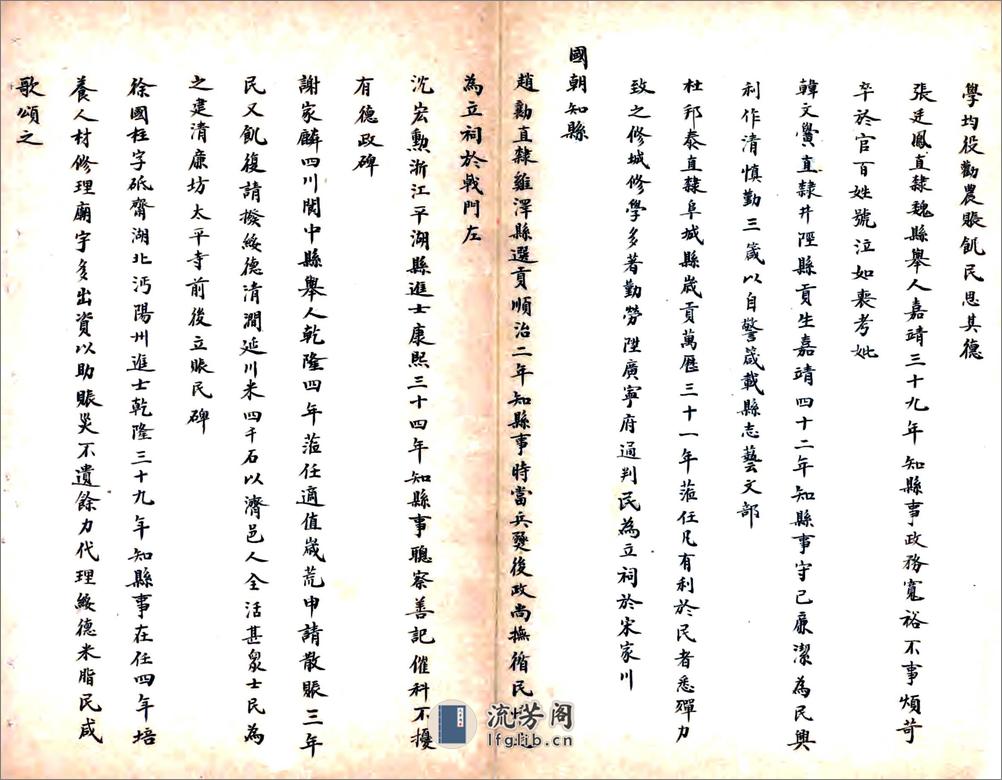 學均役勸農賬飢民思其德
張廷鳳直隸魏縣舉人嘉靖三十九年知縣事政務寬裕不事煩苛
卒於官百姓號泣如喪考妣
韓文黌直隸井陘縣貢生嘉靖四十二年知縣事守己廉潔為民興
利作清慎勤三箴以自警箴載縣志藝文部
杜邦泰直隸阜城縣歲貢萬歷三十一年蒞任凡有利於民者悉殫力
致之修城修學多著勤勞陞廣寧府通判民為立祠於宋家川
國朝知縣
趙勷直隸雞澤縣選貢順治二年知縣事時當兵燹後政尚撫循民
為立祠於戟門左
沈宏勲浙江平湖縣進士康熙三十四年知縣事聰察善記催科不擾
有德政碑
謝家麟四川閬中縣舉人乾隆四年蒞任適值歲荒申請散賬三年
民又飢復請撥綏德清澗延川米四千石以濟邑人全活甚衆士民為
之建清廉坊太平寺前後立賬民碑
徐國柱字砥齋湖北沔陽州進士乾隆三十九年知縣事在任四年培
養人材修理廟宇多出資以助賬災不遺餘力代理綏德米脂民咸
歌頌之
流芳阁
lfglib.cn